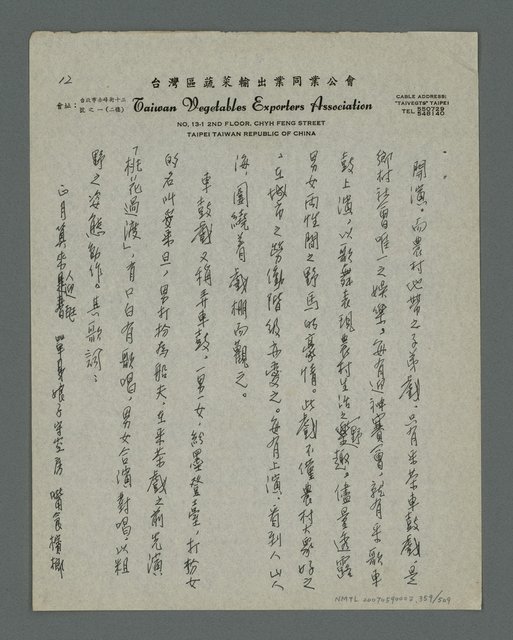 12
台灣區蔬菜輸出業同業公會
會址：台北市赤峰街十三號之一(二樓)
Taiwan Vegetables Exporters Association
CABLE ADDRESS:
"TAIVEGTS" TAIPEI
TEL. 550729
548140
NO. 13-1 2ND FLOOR, CHYH FENG STREET
TAIPEI TAIWAN REPUBLIC OF CHINA
開演。而農村地帶之子弟戲，只有采茶車鼓戲，是
鄉村社會唯一之娛樂。每有迎神賽會，就有采歌車
鼓上演，以歌舞表現農村生活之野趣。儘量透露
男女兩性間之野馬的豪情。此戲不僅農村大眾好之
，在城市之勞働階級亦愛之。每有上演，看到人山人
海，圍繞着戲棚而觀之。
車鼓戲又稱弄車鼓，一男一女，粉墨登臺，打扮女
的名叫愛乗旦，男打扮為船夫，在采茶戲之前先演
「桃花過渡」，有口白有歌唱，男女合演對唱，以粗
野之姿態動作。其歌詞：
正月算來人迎尪 單身娘子守空房 嘴食檳榔
NMTL 20070590002 359/509